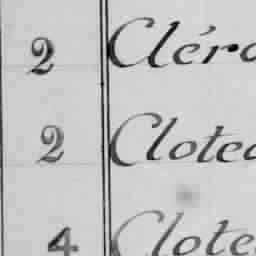 2 Cléro
2 Clotea
4 Clote